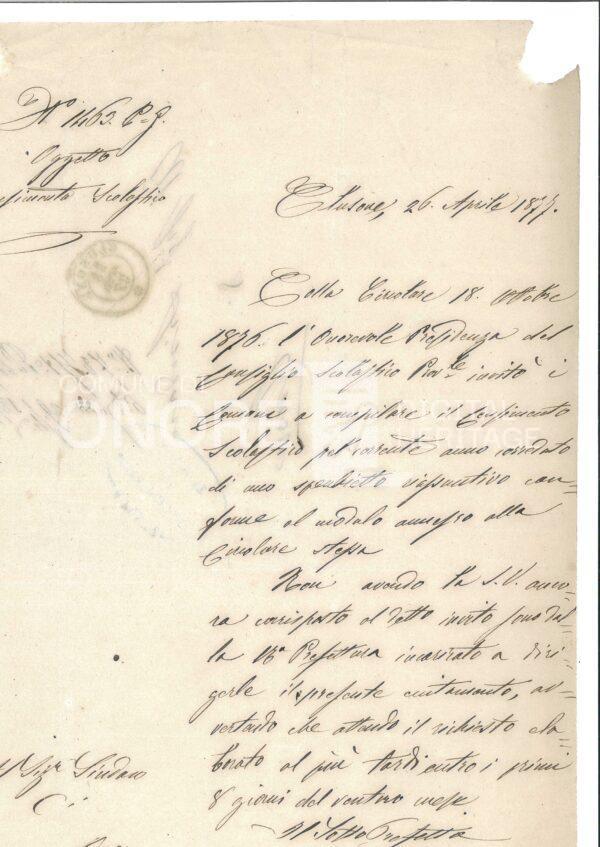 N° 1463. P. G.
Oggetto
Censimento Scolastico
Clusone, 26. Aprile 1877.
Colla Circolare 18. Ottobre
1876. l'Onorevole Presidenza del
Consiglio Scolastico Prov.le invitò i
Comuni a compilare il Censimento
Scolastico pel corrente anno corredato
di uno specchietto riassuntivo con-
forme al modulo annesso alla
Circolare stessa
Non avendo la S.V. anco-
ra corrisposto al detto invito sono dal-
la R.a Prefettura incaricato a diri-
gerle il presente eccitamento, av-
vertendo che attendo il richiesto ela-
borato al più tardi entro i primi
8 giorni del venturo mese
Il Sotto Prefetto
Sig.r Sindaco
di
COMUNE DI
ONORE
DIGITAL
HERITAGE